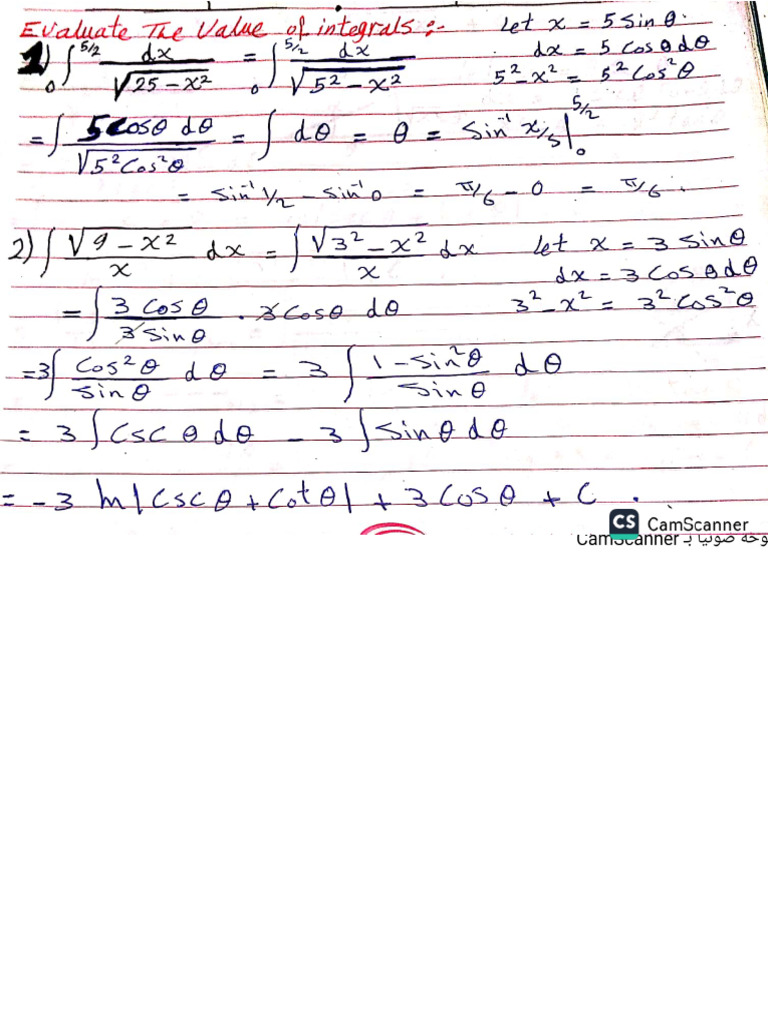 Evaluate The Value of integrals :-
Let x = 5 sin θ.
dx = 5 cos θ dθ
5² - x² = 5² cos² θ
1) ∫₀^{5/2} dx / √(25 - x²) = ∫₀^{5/2} dx / √(5² - x²)
= ∫ 5 cos θ dθ / √(5² Cos² θ) = ∫ dθ = θ = sin⁻¹ x/5 |₀^{5/2}
= sin⁻¹ 1/2 - sin⁻¹ 0 = π/6 - 0 = π/6 .
2) ∫ √(9 - x²) / x dx = ∫ √(3² - x²) / x dx
Let x = 3 sin θ
dx = 3 cos θ dθ
3² - x² = 3² cos² θ
= ∫ 3 Cos θ / 3 sin θ . 3 cos θ dθ
= 3 ∫ Cos² θ / sin θ dθ = 3 ∫ 1 - sin² θ / sin θ dθ
= 3 ∫ Csc θ dθ - 3 ∫ sin θ dθ
= -3 ln | Csc θ + Cot θ | + 3 Cos θ + C .
CS CamScanner
وحه صوبيا بـ CamScanner